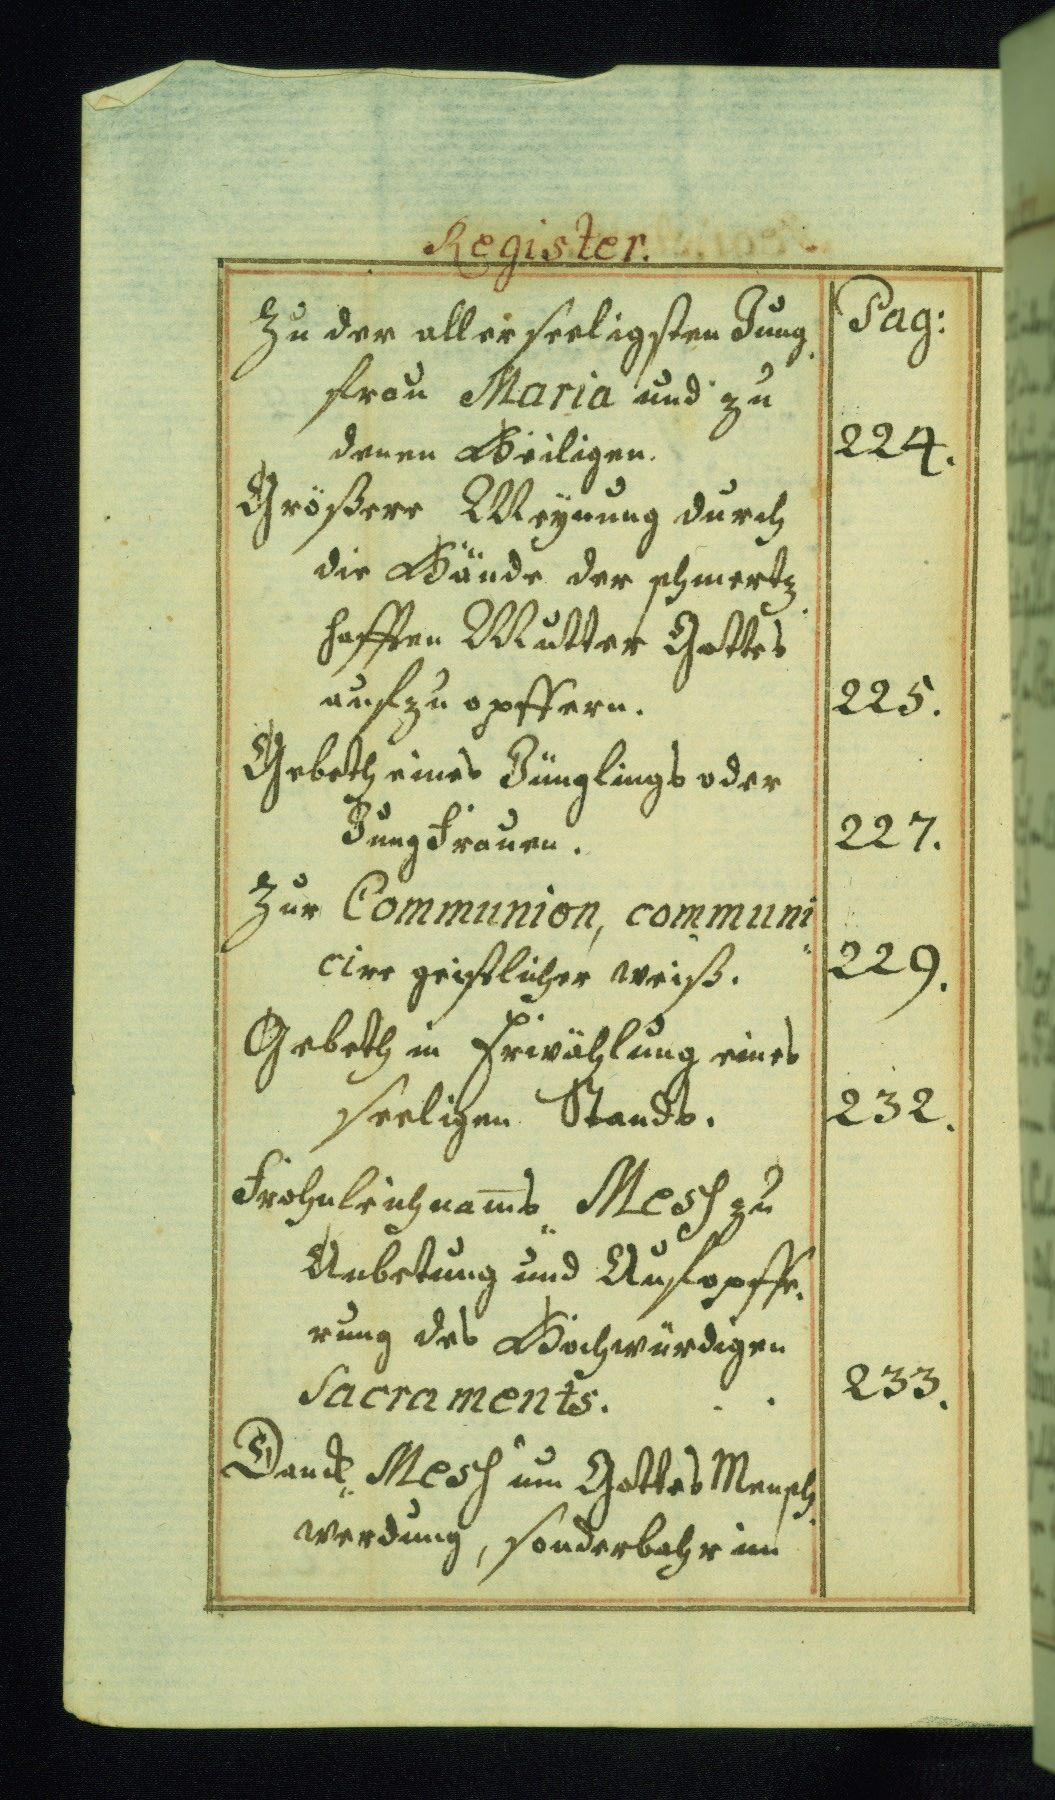 Register.
Zu der allerseeligsten Jung Pag:
frau Maria und zu
denen Heiligen. 224.
Größere Meynung durch
die Hände der schmertz
hafften Mutter Gottes
aufzuopffern. 225.
Gebeth eines Jünglings oder
Jungfrauen. 227.
Zur Communion, communi
cire geistlicher weiß. 229.
Gebeth in Erwählung eines
seeligen Stands. 232.
Frohnleichnams Mesß zu
Anbetung und Aufopffe,
rung des Hochwürdigen
Sacraments. 233.
Danck Mesß um Gottes Mensch
werdung, sonderbahr im